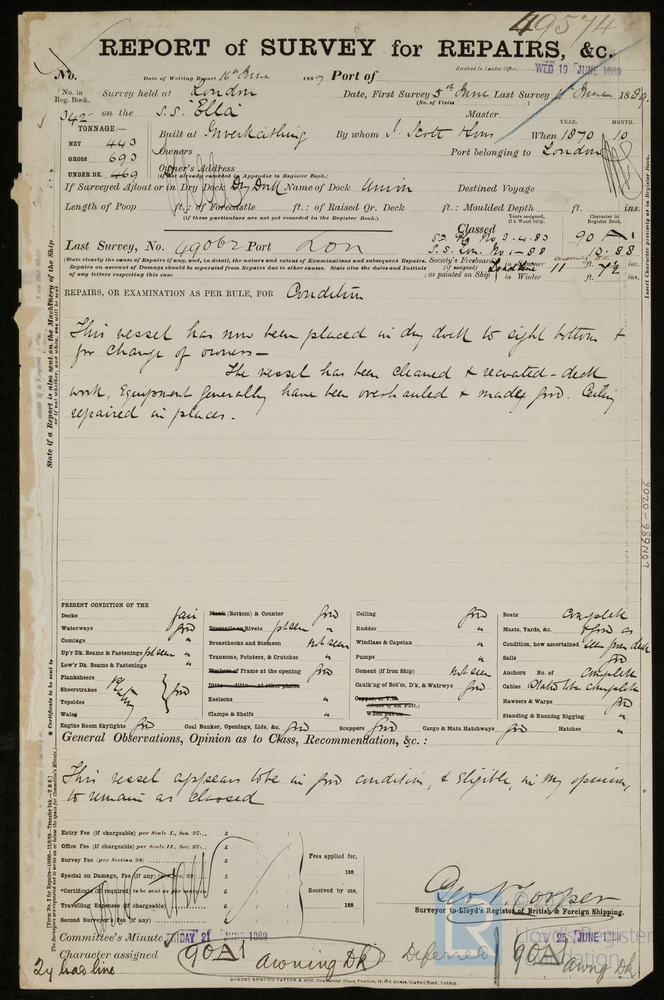 49574
REPORT of SURVEY for REPAIRS, &c.
No. Date of Writing Report 16th June 188 9 Port of Received in London Office, WED 19 JUNE 1889
No. in Reg. Book. Survey held at London Date, First Survey 5th June Last Survey June 1889.
(No. of Visits )
342 on the S.S. "Ella" Master
TONNAGE:— YEAR. MONTH.
NET 443 Built at Inverkeithing By whom J. Scott & Sons When 1870 10
GROSS 693 Owners Port belonging to London
UNDER DK. 469 Owner's Address
(if not already recorded in Appendix to Register Book.)
If Surveyed Afloat or in Dry Dock Dry Dock Name of Dock Union Destined Voyage
Length of Poop ft.: of Forecastle ft.: of Raised Qr. Deck ft.: Moulded Depth ft. ins.
(if these particulars are not yet recorded in the Register Book.)
Years assigned, if a Wood Ship. Character in Register Book.
Classed
Last Survey, No. 49062 Port Lon
S.S. Lon. No 1-88 10.88
(State clearly the cause of Repairs if any, and, in detail, the nature and extent of Examinations and subsequent Repairs.
Repairs on account of Damage should be separated from Repairs due to other causes. State also the dates and Initials
of any letters respecting this case.
Society's Freeboard (if assigned) as painted on Ship in Summer 11 ft. 7½ ins.
in Winter ft. ins.
REPAIRS, OR EXAMINATION AS PER RULE, FOR Condition
This vessel has now been placed in dry dock to sight bottom &
for change of owners—
The vessel has been cleaned & recoated - deck
work, Equipment generally have been overhauled & made good. Ceiling
repaired in places.
PRESENT CONDITION OF THE
Decks fair
Waterways good
Comings "
Up'r Dk. Beams & Fastenings pt seen "
Low'r Dk. Beams & Fastenings "
Planksheers
Sheerstrakes
Topsides
Wales
good
Engine Room Skylights good
Plank (Bottom) & Counter good
Treenails or Rivets pt seen "
Breasthooks and Stemson not seen
Transoms, Pointers, & Crutches "
Timbers of Frame at the opening good
Ditto ditto at other places
Keelsons "
Clamps & Shelfs "
Coal Bunker, Openings, Lids, &c. good
Ceiling good
Rudder "
Windlass & Capstan "
Pumps "
Cement (if Iron Ship) Not seen
Caulk'ng of Bot'm, D'k, & Watrwys good
Scuppers good
Cargo & Main Hatchways good
Boats Complete
Masts, Yards, &c. & good as
Condition, how ascertained seen from deck
Sails good
Anchors No. of Complete
Cables Stated to be Complete
Hawsers & Warps good
Standing & Running Rigging "
Hatches "
General Observations, Opinion as to Class, Recommendation, &c. :
This vessel appears to be in good condition, & Eligible, in my opinion,
to remain as classed
Entry Fee (if chargeable) per Scale I., Sec. 27... £
Office Fee (if chargeable) per Scale II., Sec. 27... £
Survey Fee (per Section 28) £
Special on Damage, Fee (if any) £
*Certificate (if required) to be sent as per margin £
Travelling Expenses (if chargeable) £
Second Surveyor's Fee (if any) £
Fees applied for,
188
Received by me,
188
Surveyor to Lloyd's Register of British & Foreign Shipping.
Committee's Minute FRIDAY 21 JUNE 1889 25 JUNE 1889
Character assigned 90A1 awning Dk Deferred 90A1 awng Dk
LON986-0206
State if a Report is also sent on the Machinery of the Ship
* Certificate to be sent to
Insert Character precisely as in Register Book.
Lloyd's Register
Foundation